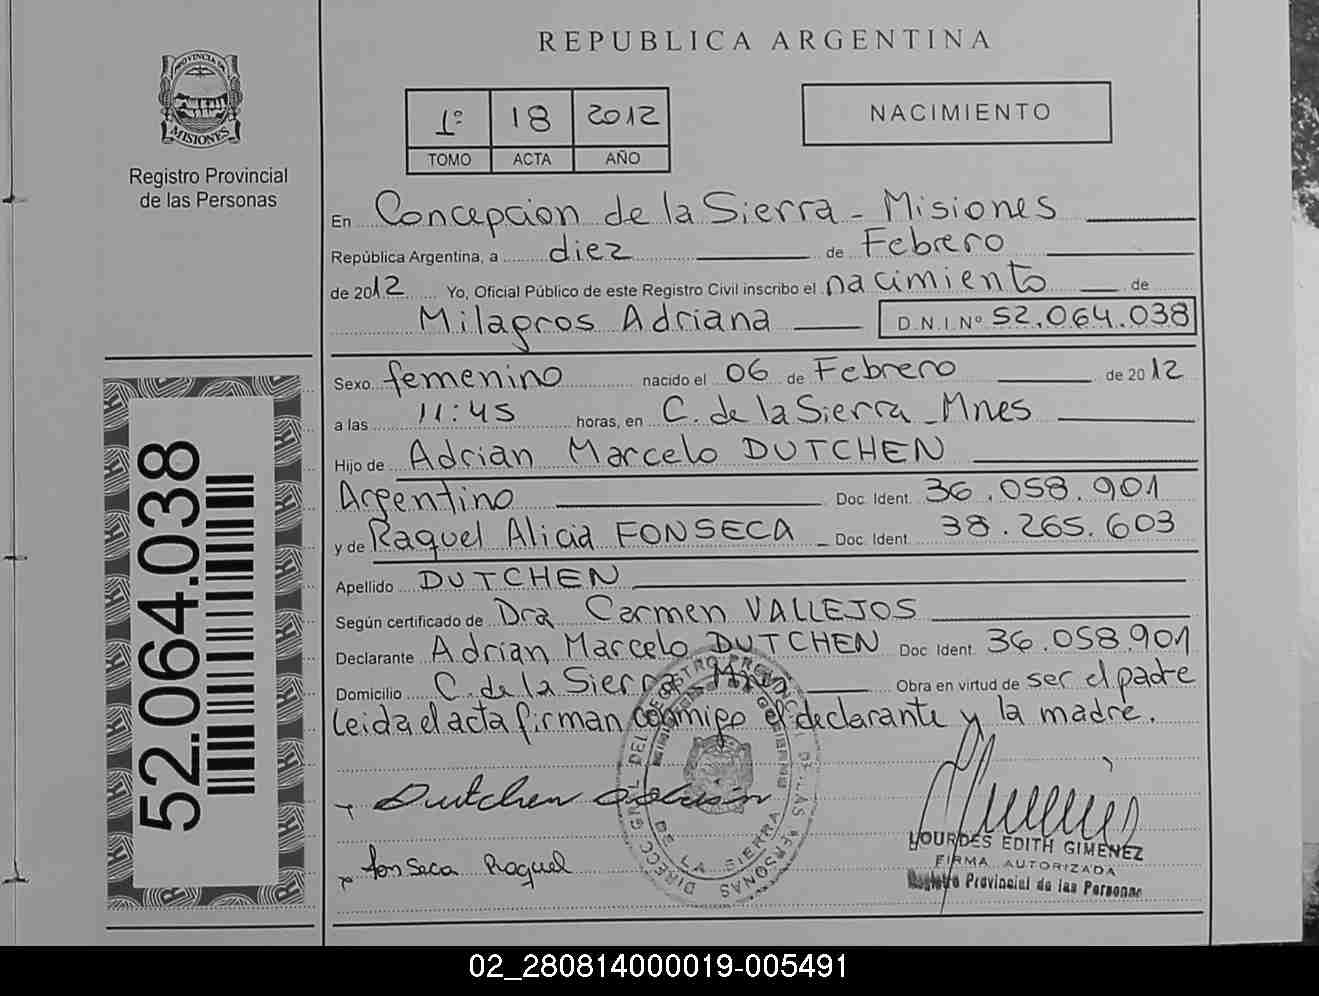 REPUBLICA ARGENTINA
PROVINCIA
MISIONES
Registro Provincial
de las Personas
1º 18 2012
TOMO ACTA AÑO
NACIMIENTO
En Concepcion de la Sierra - Misiones
República Argentina, a diez de Febrero
de 2012 Yo, Oficial Público de este Registro Civil inscribo el nacimiento de
Milagros Adriana D.N.I.Nº 52.064.038
Sexo femenino nacido el 06 de Febrero de 2012
a las 11:45 horas, en C. de la Sierra - Mnes
Hijo de Adrian Marcelo DUTCHEN
Argentino Doc. Ident. 36.058.901
y de Raquel Alicia FONSECA Doc. Ident. 38.265.603
Apellido DUTCHEN
Según certificado de Dra Carmen VALLEJOS
Declarante Adrian Marcelo DUTCHEN Doc. Ident. 36.058.901
Domicilio C. de la Sierra Mnes Obra en virtud de ser el padre
Leida el acta firman conmigo el declarante y la madre.
52.064.038
Dutchen
Fonseca Raquel
DE LA SIERRA
LOURDES EDITH GIMENEZ
FIRMA AUTORIZADA
Registro Provincial de las Personas
02_280814000019-005491